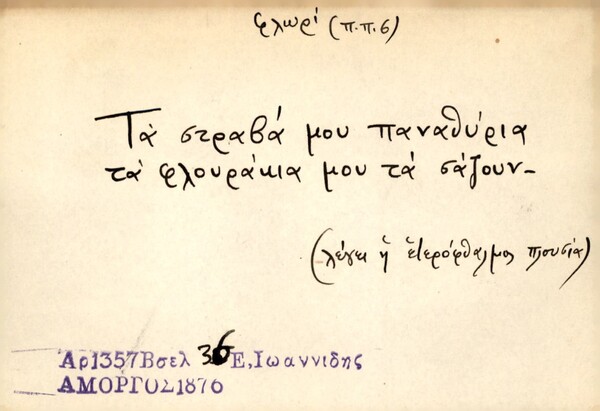 φλωρί (π.π.6)
Τὰ στραβά μου παναθύρια
τὰ φλουράκια μου τὰ σάζουν_
(λέγει ἡ ἑτερόφθαλμος πλουσία)
Αρ1357Βσελ 36 Ε,Ιωαννιδης
ΑΜΟΡΓΟΣ1876